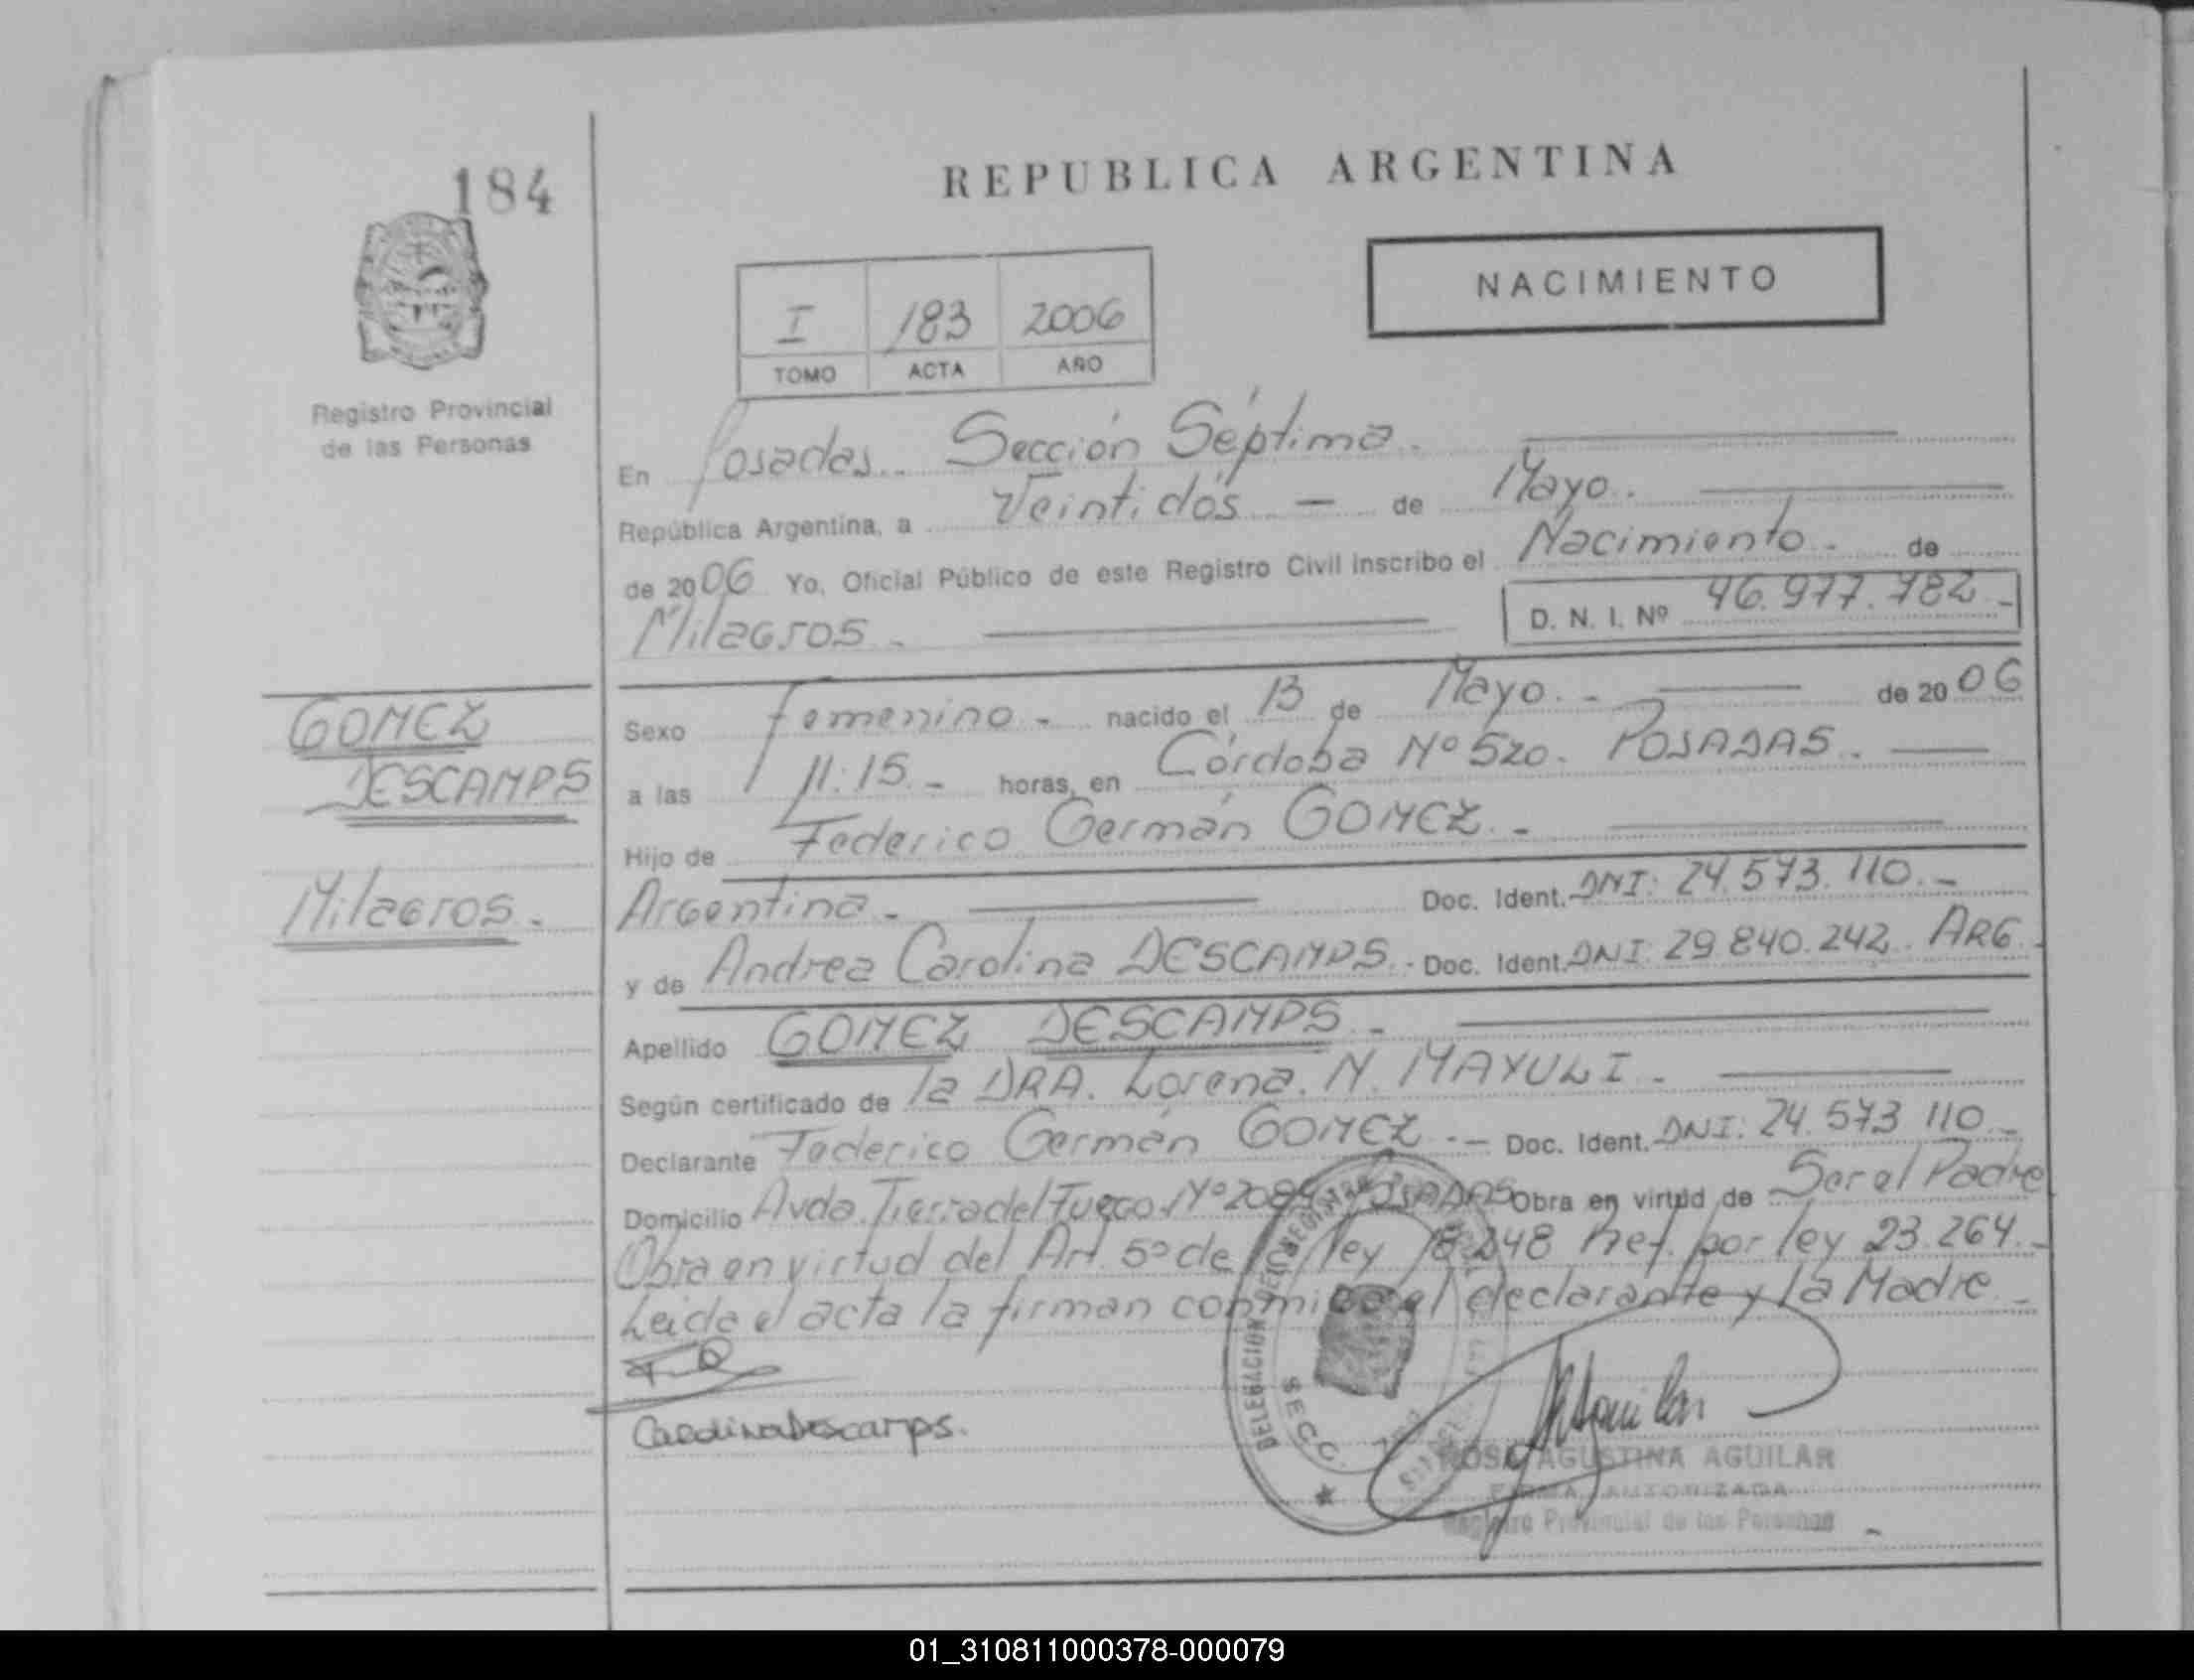 184
REPUBLICA ARGENTINA
NACIMIENTO
I 183 2006
TOMO ACTA AÑO
Registro Provincial
de las Personas
En Posadas. Sección Séptima.
República Argentina, a Veintidós — de Mayo.
de 2006 Yo, Oficial Público de este Registro Civil inscribo el Nacimiento. de
Milagros. D. N. I. Nº 46.977.782.-
GOMEZ
DESCAMPS
Milagros.
Sexo femenino - nacido el 13 de Mayo. - de 2006
a las 11:15.- horas, en Córdoba Nº 520. POSADAS.
Hijo de Federico Germán GOMEZ. -
Argentina. Doc. Ident. DNI: 24.573.110.-
y de Andrea Carolina DESCAMPS. Doc. Ident. DNI: 29.840.242. ARG.
Apellido GOMEZ DESCAMPS -
Según certificado de la DRA. Lorena. N. MAYULI -
Declarante Federico Germán GOMEZ.- Doc. Ident. DNI: 24.573.110.-
Domicilio Avda. Tierra del Fuego. Nº POSADAS Obra en virtud de Ser el Padre
Obra en virtud del Art. 5º de la ley 18.248 por ley 23.264.-
Leida el acta la firman conmigo el declarante y la Madre.-
Carolina Descamps.
DELEGACION
SECC.
ROSA AGUSTINA AGUILAR
FIRMA AUTORIZADA
Registro Provincial de las Personas
01_310811000378-000079